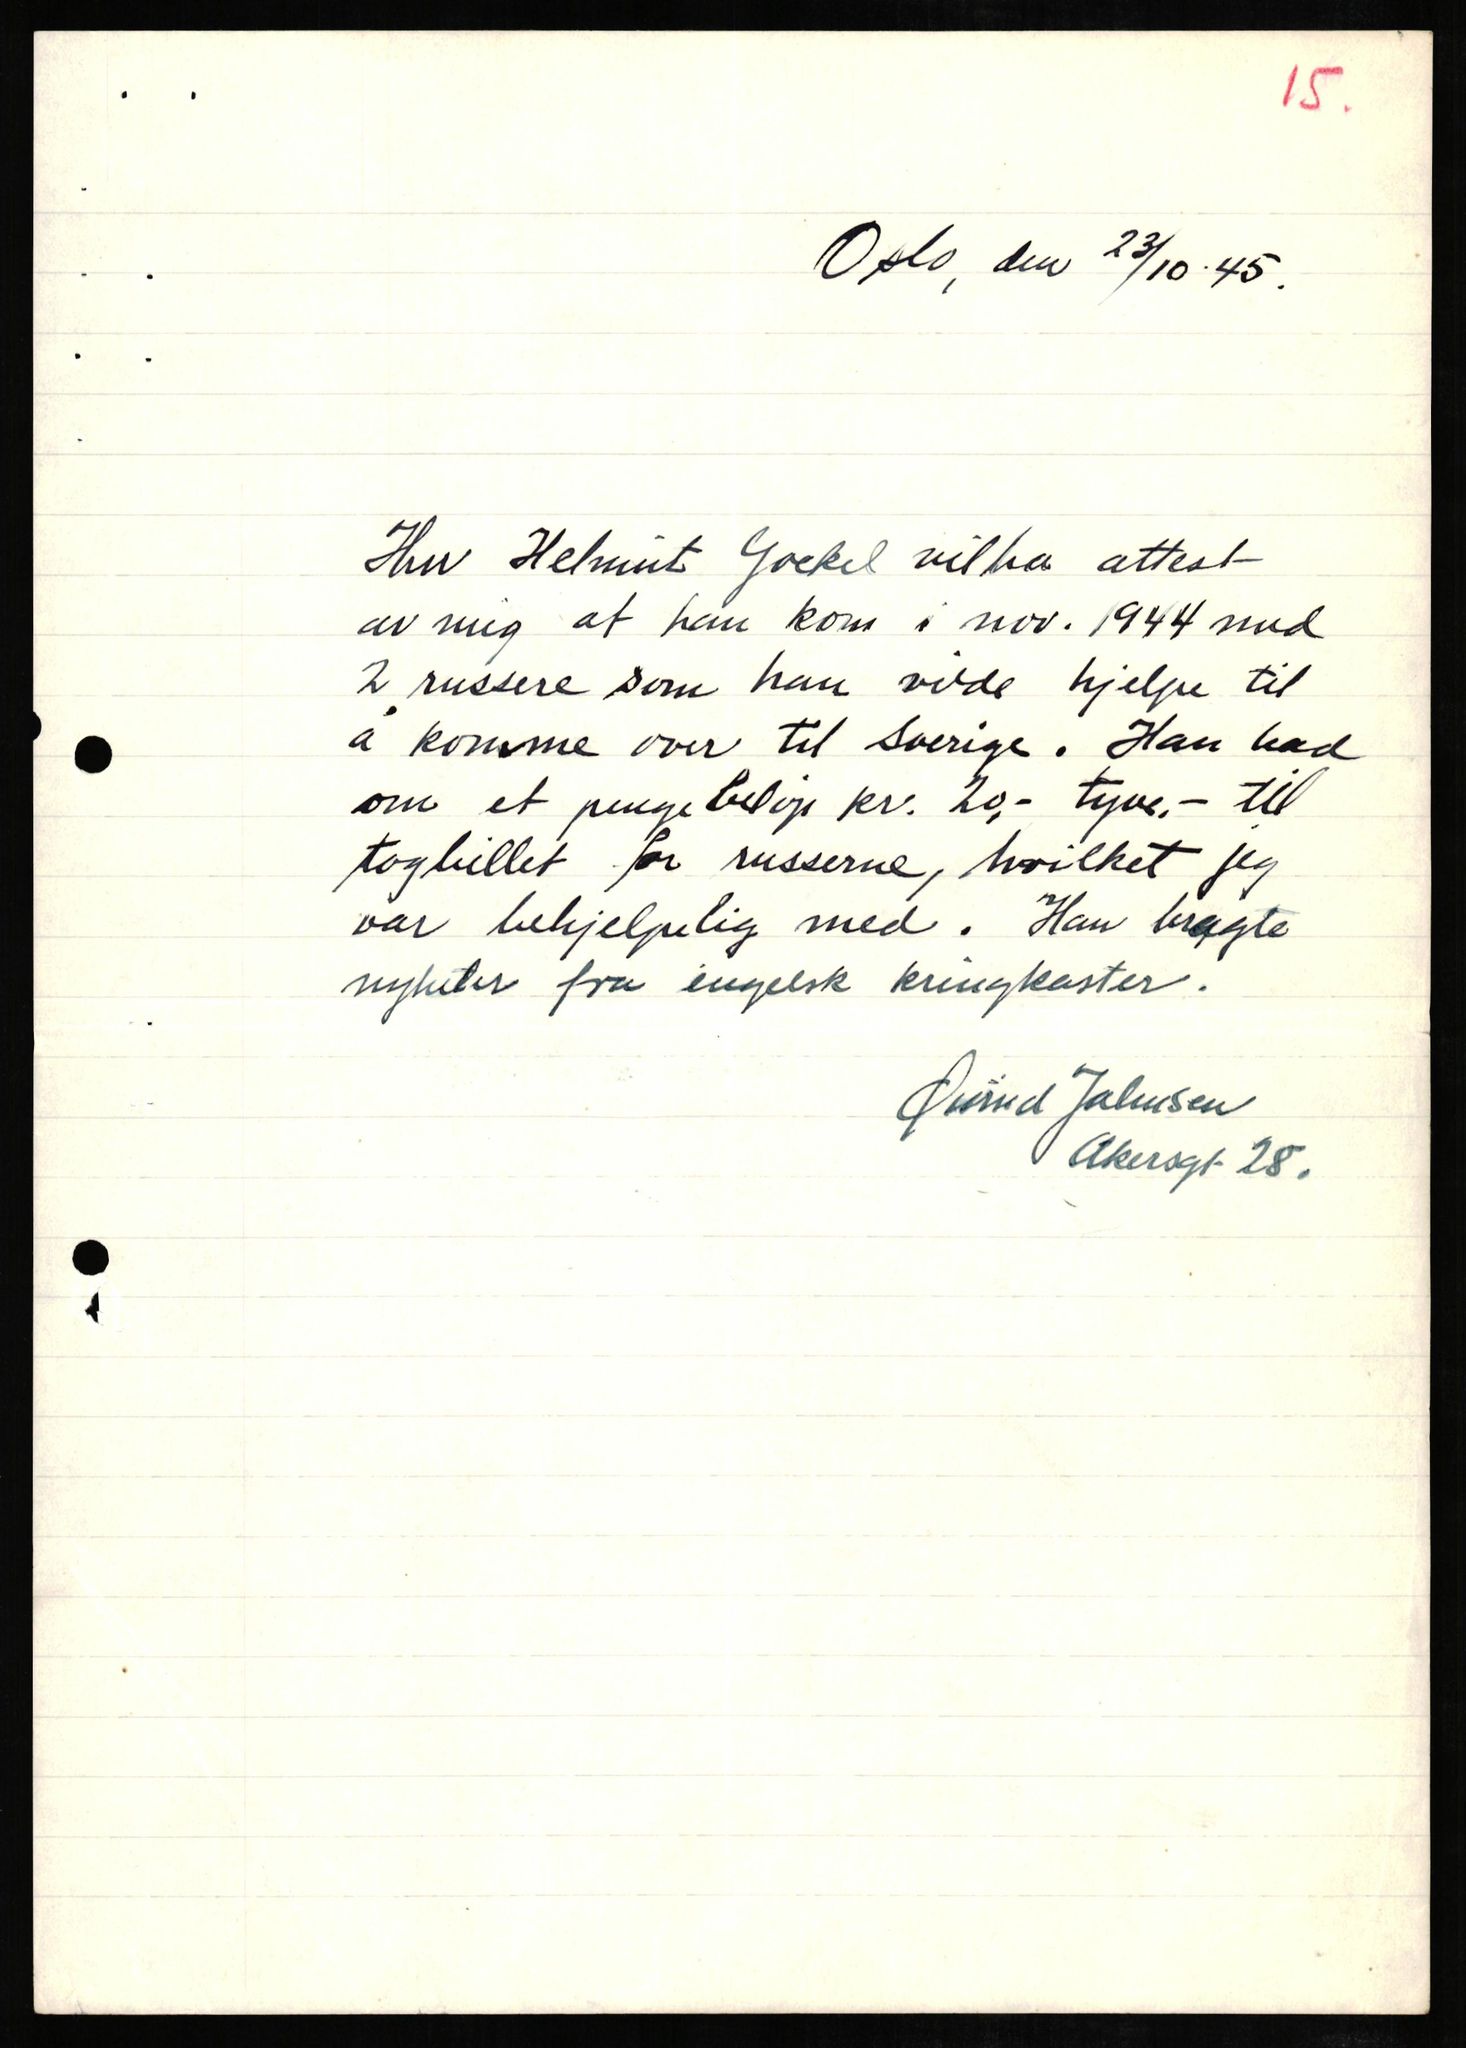 15.
Oslo, den 23/10.45.
Herr Helmut Gockel vil ha attest
av mig at han kom i nov. 1944 med
2 russere som han vilde hjelpe til
å komme over til Sverige. Han bad
om et pengebeløp kr. 20,- tyve,- til
togbillet for russerne, hvilket jeg
var behjelpelig med. Han bragte
nyheter fra engelsk kringkaster.
Øivind Jahnsen
Akersgt 28.